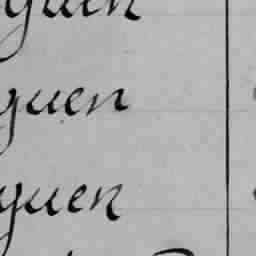 guen
guen
guen